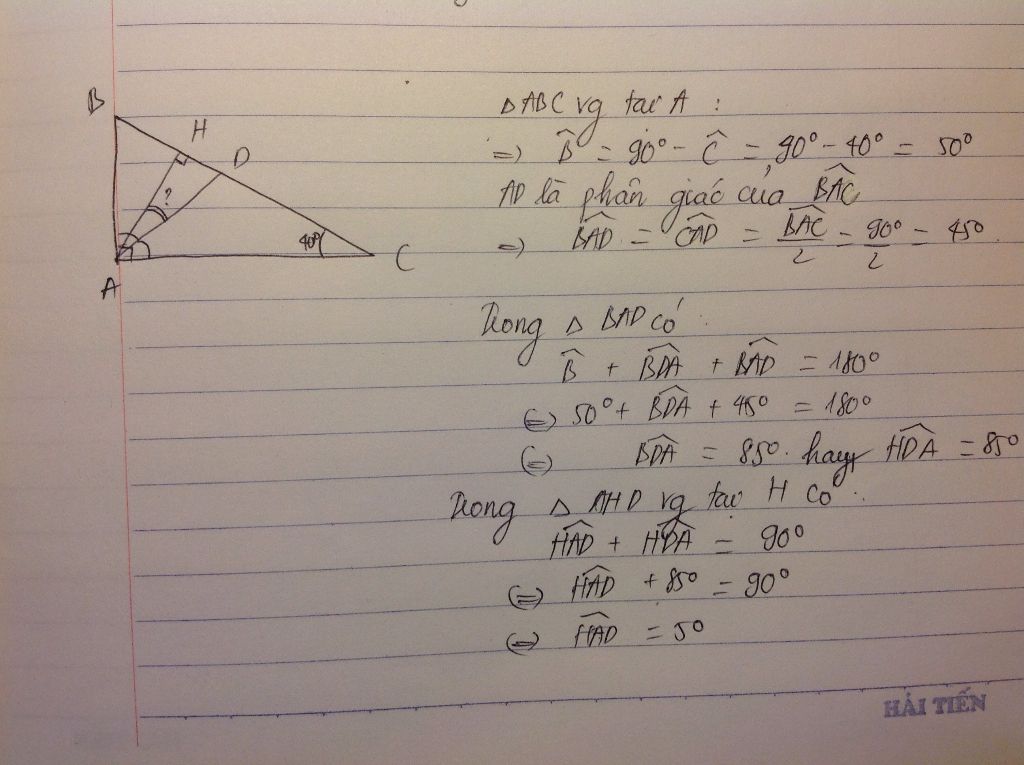 B
H
D
?
40°
C
A
△ABC vg tại A :
=> B̂ = 90° - Ĉ = 90° - 40° = 50°
AD là phân giác của BAC^
=> BAD^ = CAD^ = BAC^/2 = 90°/2 = 45°
Trong △ BAD có :
B̂ + BDA^ + BAD^ = 180°
(=) 50° + BDA^ + 45° = 180°
(=) BDA^ = 85° hay HDA^ = 85°
Trong △ AHD vg tại H có :
HAD^ + HDA^ = 90°
(=) HAD^ + 85° = 90°
(=) HAD^ = 5°
HẢI TIẾN